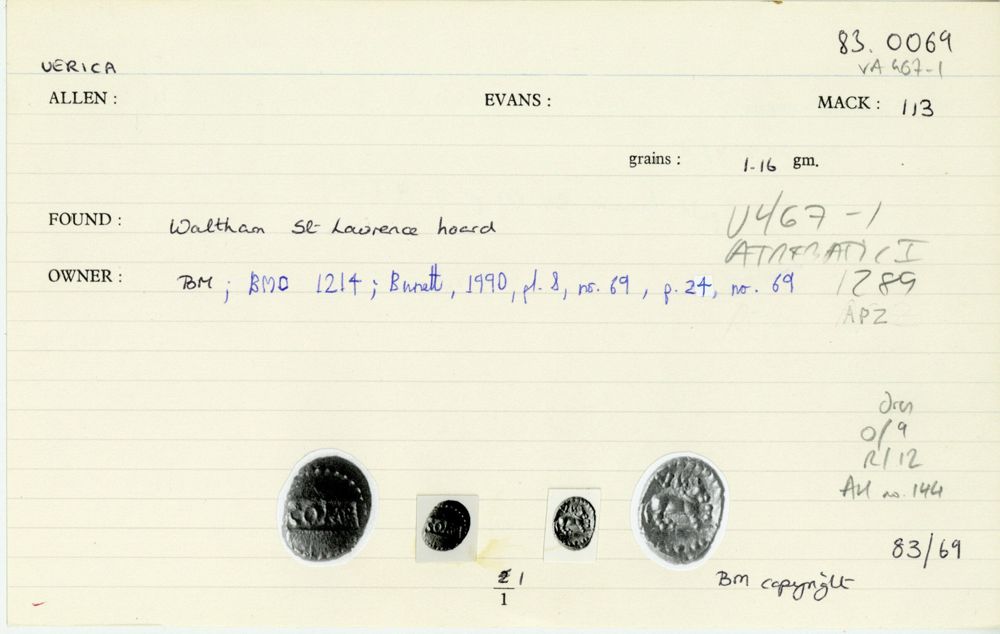 83.0069
VERICA
VA 467-1
ALLEN :
EVANS :
MACK : 113
grains : 1.16 gm.
FOUND : Waltham St Lawrence hoard
V467-1
ATREBATIC I
OWNER : BM ; BMC 1214 ; Burnett, 1990, pl. 8, no. 69, p. 24, no. 69
1289
APZ
O/9
R/12
no. 144
83/69
1
1
BM copyright